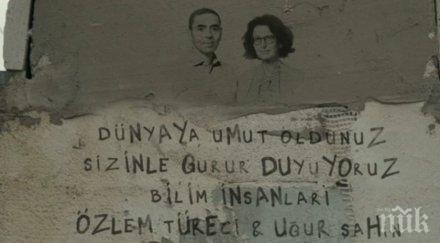 DÜNYAYA UMUT OLDUNUZ
SİZİNLE GURUR DUYUYORUZ
BİLİM İNSANLARI
ÖZLEM TÜRECİ & UĞUR ŞAHİN
ПИК